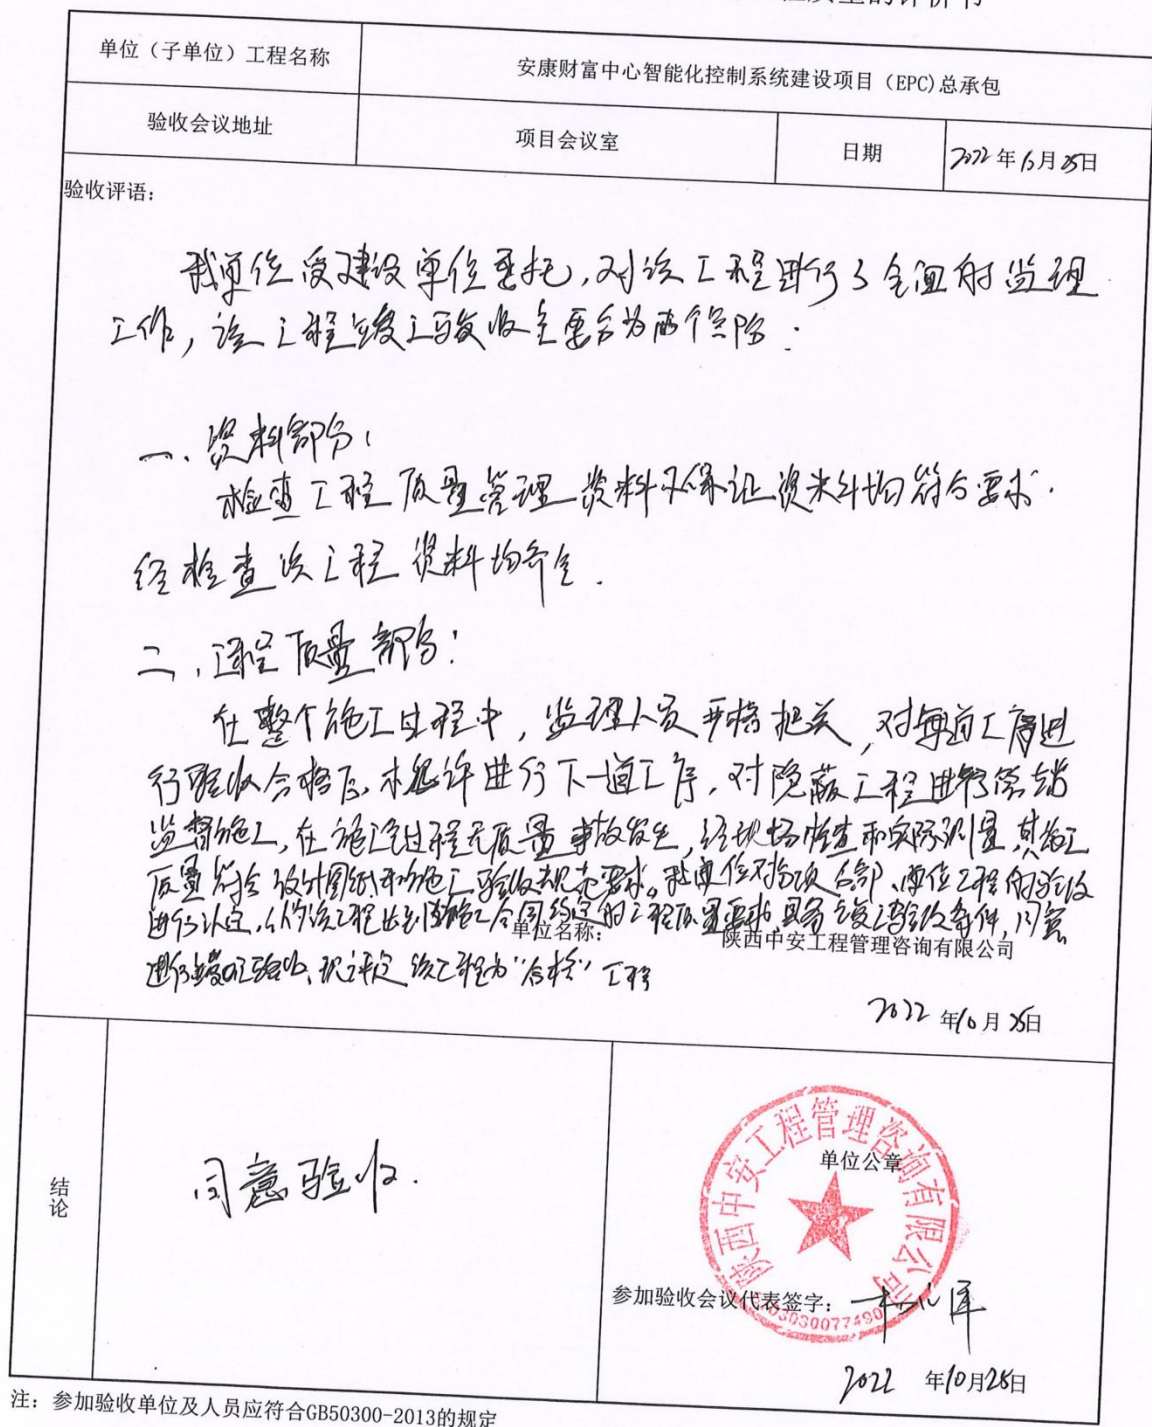 质量的评价书
单位（子单位）工程名称
安康财富中心智能化控制系统建设项目（EPC)总承包
验收会议地址
项目会议室
日期
2022年10月25日
验收评语：
我单位受建设单位委托，对该工程进行了全面的监理
工作，该工程竣工验收主要分为两个阶段：
一、资料部分：
检查工程质量管理资料及保证资料均符合要求.
经检查该工程资料均齐全.
二、工程质量部分：
在整个施工过程中，监理人员严格把关，对每道工序进
行验收合格后，才允许进行下一道工序，对隐蔽工程进行旁站
监督施工，在施工过程无质量事故发生，经现场检查和实际测量，其施工
质量符合设计图纸和施工验收规范要求。我单位对各项分部、单位工程的验收
进行认定，认为该工程达到了施工合同约定的工程质量要求，具备竣工验收条件，同意
单位名称：
陕西中安工程管理咨询有限公司
进行竣工验收、现评定该工程为“合格”工程
2022 年10月25日
结论
同意验收.
陕西中安工程管理咨询有限公司
单位公章
参加验收会议代表签字：
03030077490
2022 年10月25日
注：参加验收单位及人员应符合GB50300-2013的规定